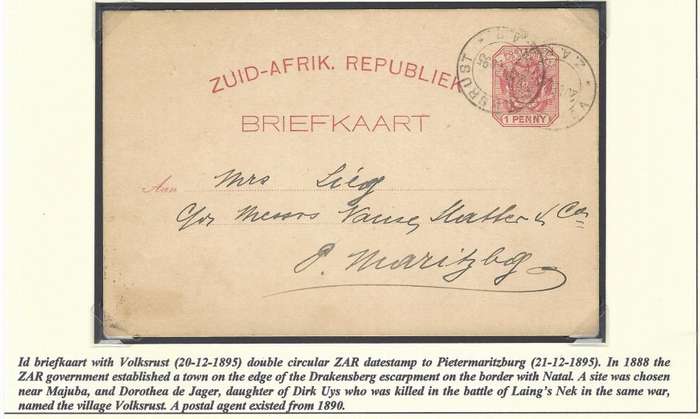 ZUID-AFRIK. REPUBLIEK
BRIEFKAART
1 PENNY
Aan Mrs
C/o Messrs Vause, Slatter & Co
P. Maritzbg
Id briefkaart with Volksrust (20-12-1895) double circular ZAR datestamp to Pietermaritzburg (21-12-1895). In 1888 the
ZAR government established a town on the edge of the Drakensberg escarpment on the border with Natal. A site was chosen
near Majuba, and Dorothea de Jager, daughter of Dirk Uys who was killed in the battle of Laing's Nek in the same war,
named the village Volksrust. A postal agent existed from 1890.